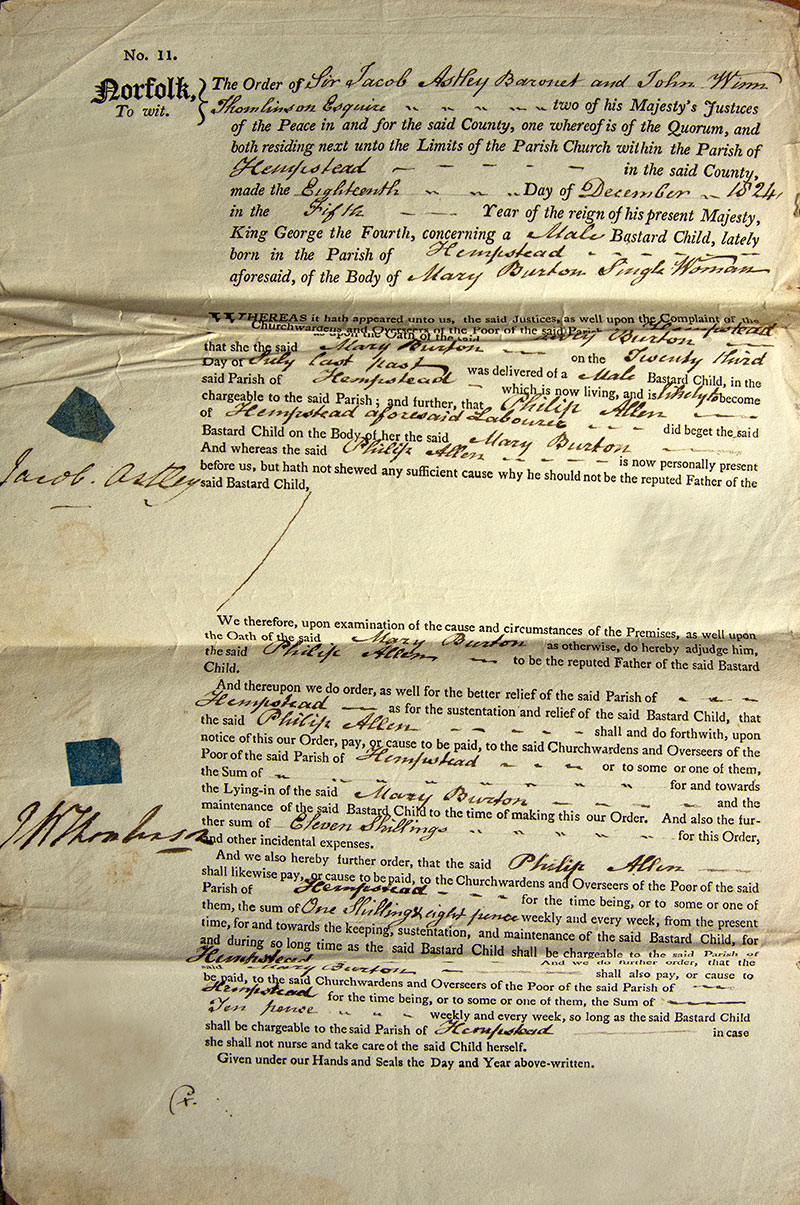 No. 11.
Norfolk, } The Order of Sir Jacob Astley Baronet and John Winn
To wit. Thomlinson Esquire two of his Majesty's Justices
of the Peace in and for the said County, one whereof is of the Quorum, and
both residing next unto the Limits of the Parish Church within the Parish of
Hempstead in the said County,
made the Eighteenth Day of December 1824,
in the Fifth Year of the reign of his present Majesty,
King George the Fourth, concerning a Male Bastard Child, lately
born in the Parish of Hempstead
aforesaid, of the Body of Mary Burton Single Woman
WHEREAS it hath appeared unto us, the said Justices, as well upon the Complaint of the
Churchwardens and Overseers of the Poor of the said Parish Hempstead
as upon the Oath of the said Mary Burton
that she the said Mary Burton on the Twenty third
Day of July last past was delivered of a Male Bastard Child, in the
said Parish of Hempstead which is now living, and is likely to become
chargeable to the said Parish; and further, that Philip Allen
of Hempstead aforesaid Labourer did beget the said
Bastard Child on the Body of her the said Mary Burton
And whereas the said Philip Allen is now personally present
before us, but hath not shewed any sufficient cause why he should not be the reputed Father of the
said Bastard Child,
Jacob. Astley
We therefore, upon examination of the cause and circumstances of the Premises, as well upon
the Oath of the said Mary Burton as otherwise, do hereby adjudge him,
the said Philip Allen to be the reputed Father of the said Bastard
Child.
And thereupon we do order, as well for the better relief of the said Parish of
Hempstead as for the sustentation and relief of the said Bastard Child, that
the said Philip Allen shall and do forthwith, upon
notice of this our Order, pay, or cause to be paid, to the said Churchwardens and Overseers of the
Poor of the said Parish of Hempstead or to some or one of them,
the Sum of for and towards
the Lying-in of the said Mary Burton and the
maintenance of the said Bastard Child to the time of making this our Order. And also the fur-
ther sum of Eleven Shillings for this Order,
and other incidental expenses.
J W Thomlinson
And we also hereby further order, that the said Philip Allen
shall likewise pay, or cause to be paid, to the Churchwardens and Overseers of the Poor of the said
Parish of Hempstead for the time being, or to some or one of
them, the sum of One Shilling & eight pence weekly and every week, from the present
time, for and towards the keeping, sustentation, and maintenance of the said Bastard Child, for
and during so long time as the said Bastard Child shall be chargeable to the said Parish of
Hempstead And we do further order, that the
said Mary Burton shall also pay, or cause to
be paid, to the said Churchwardens and Overseers of the Poor of the said Parish of
Hempstead for the time being, or to some or one of them, the Sum of
Ten pence weekly and every week, so long as the said Bastard Child
shall be chargeable to the said Parish of Hempstead in case
she shall not nurse and take care of the said Child herself.
Given under our Hands and Seals the Day and Year above-written.